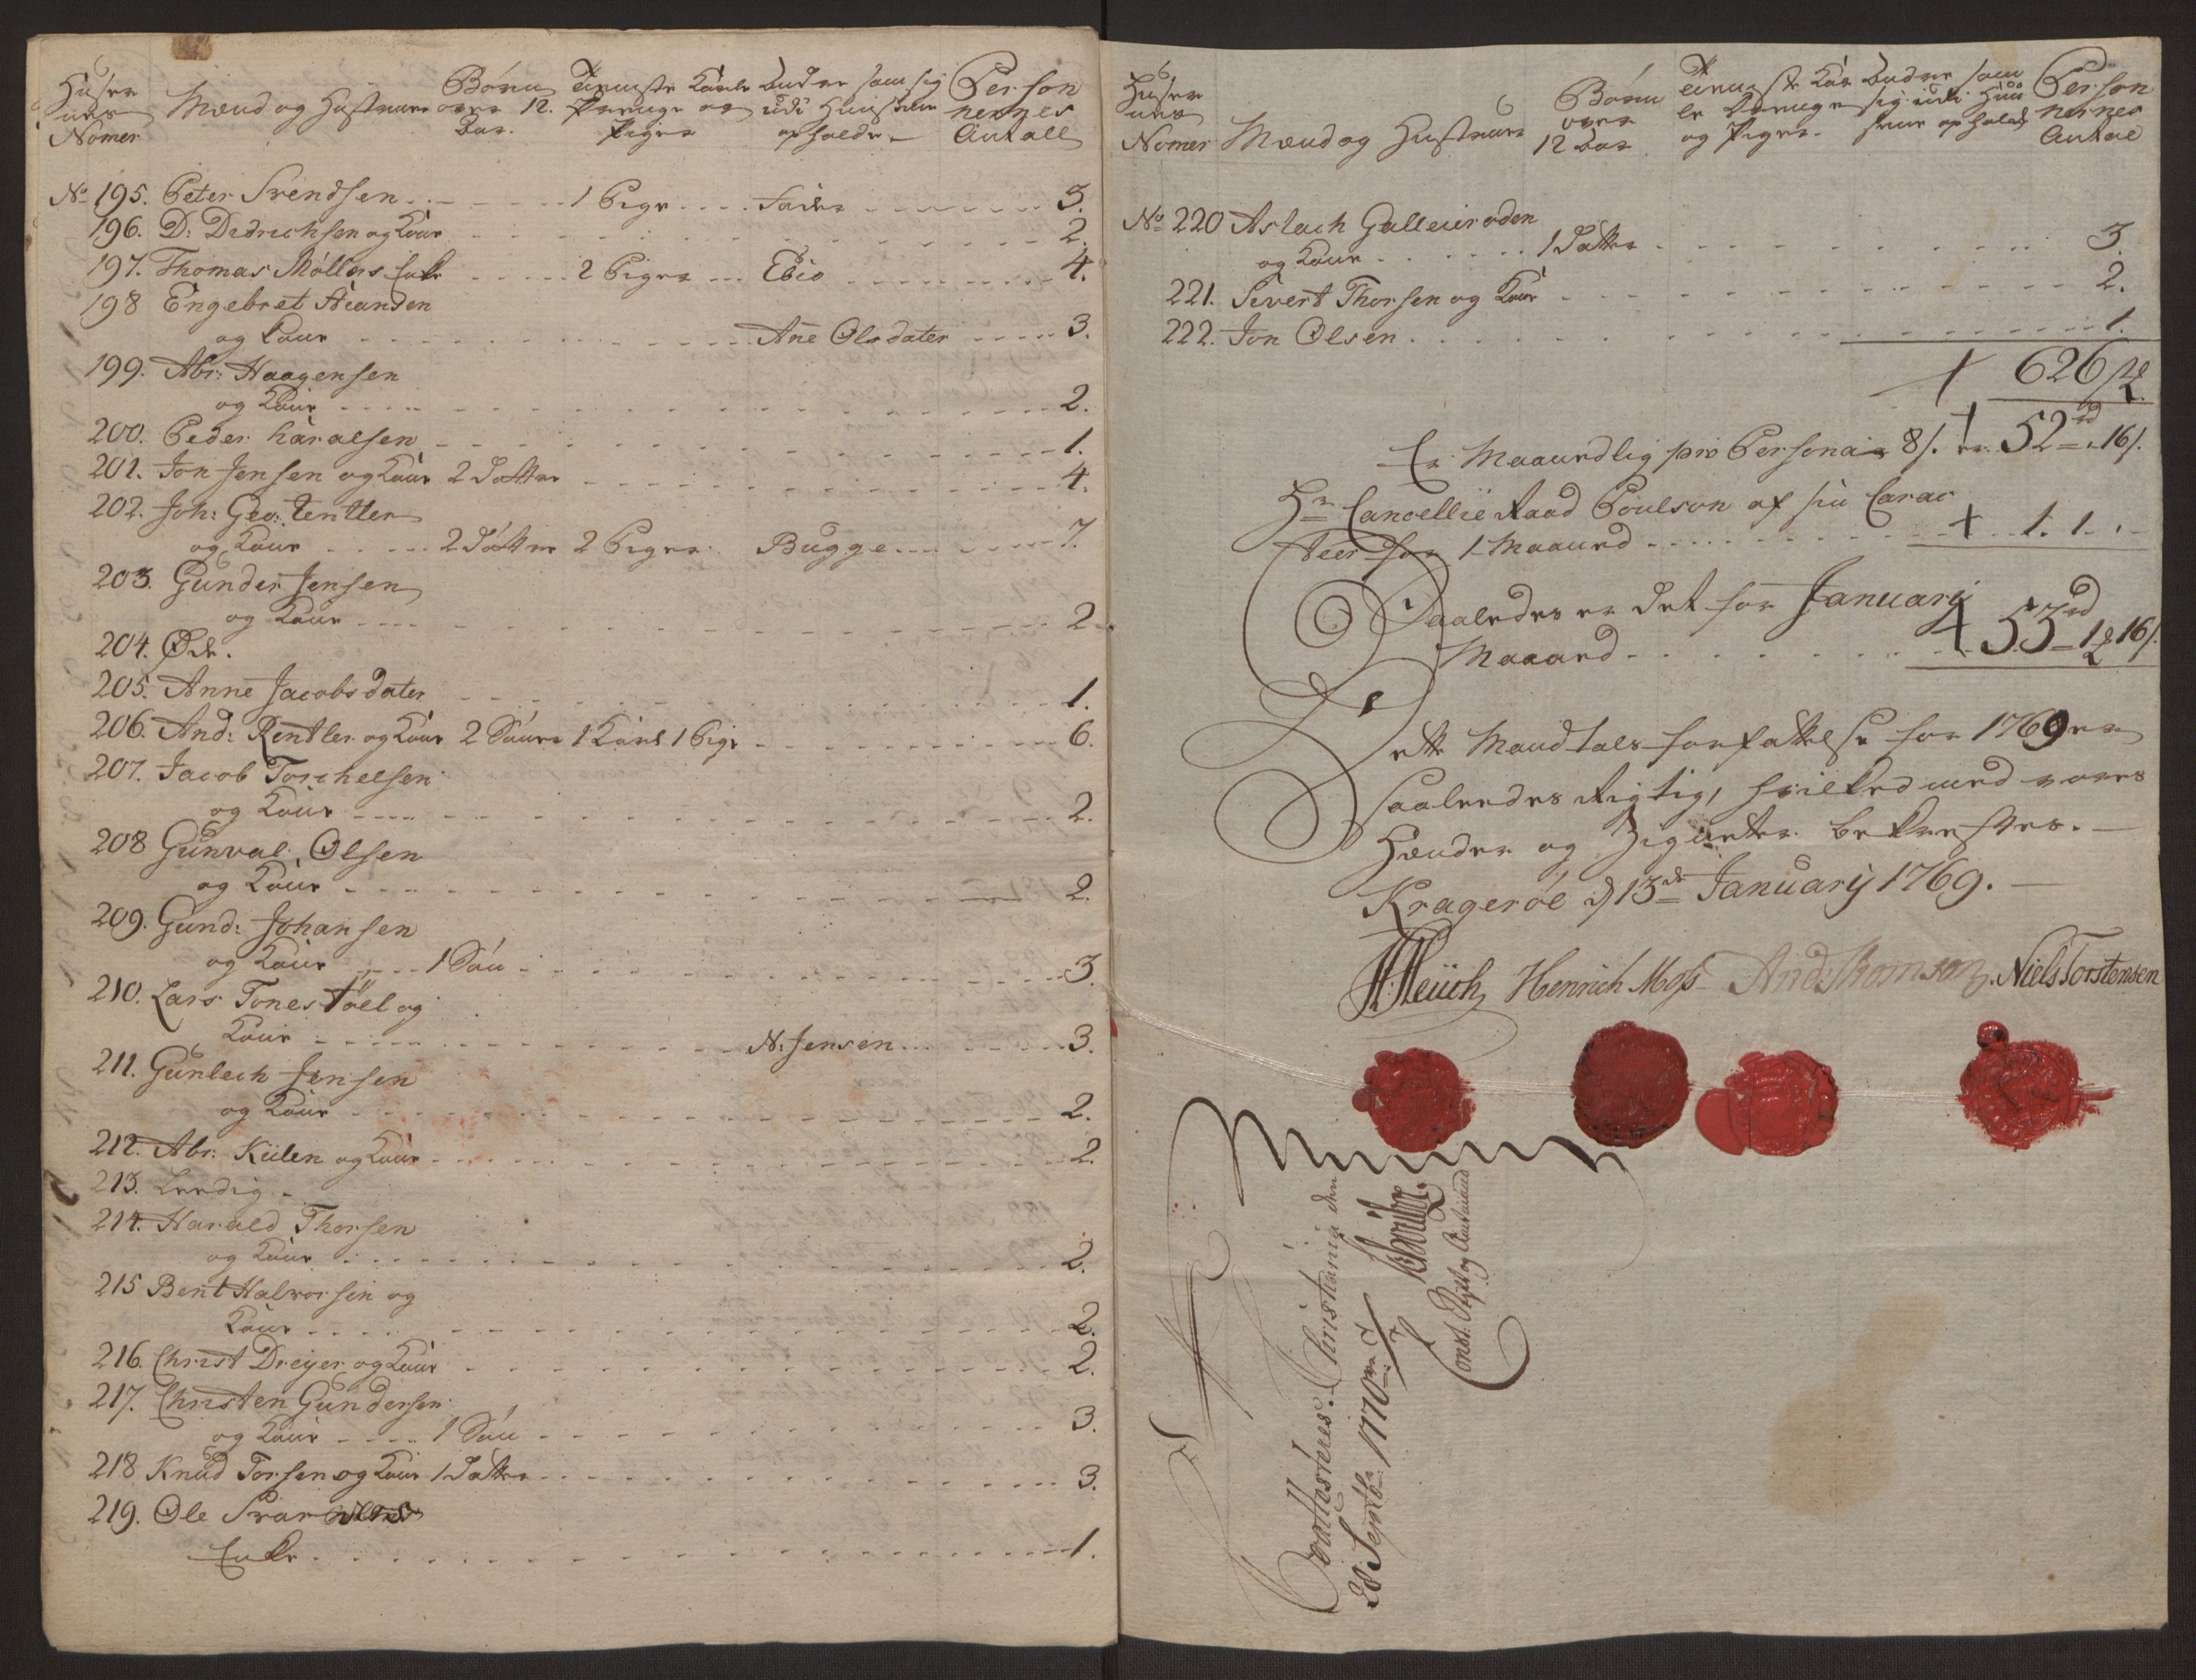 Huser
nes
Nomer
Mænd og Hustruer
Børn
over 12.
Aar.
Tieneste Karle
Drenge og
Piger
Andre som sig
udi Huusene
opholde
Person
nernes
Antall
No 195. Peter Svendsen 1 Pige Fader 3.
196. D: Didrichsen og Kone 2.
197. Thomas Møllers Enke 2 Piger Ebio 4.
198 Engebret Steansen
og Kone Ane Olsdater 3.
199. Abr: Haagensen
og Kone 2.
200. Peder Haraldsen 1.
201. Jon Jensen og Kone 2 Døttre 4.
202. Joh: Geo: Tentler
og Kone 2 Døttre 2 Piger Bugge 7.
203. Gunder Jensen
og Kone 2.
204. Øde.
205. Anne Jacobsdater 1.
206. And: Rentler og Kone 2 Sønner 1 Karl 1 Pige 6.
207. Jacob Torchelsen
og Kone 2.
208 Gunval Olsen
og Kone 2.
209. Gund: Johansen
og Kone 1 Søn 3.
210. Lars Tonestøel og
Kone N: Jensen 3.
211. Gunlech Jensen
og Kone 2.
212. Abr: Kiilen og Kone 2.
213. Leedig
214. Harald Thorsen
og Kone 2.
215 Bent Halvorsen og
Kone 2.
216. Christ Dreyer og Kone 2.
217. Christen Gundersen
og Kone 1 Søn 3.
218 Knud Torsen og Kone 1 Datter 3.
219. Ole
Enke 1.
Huser
nes
Nomer
Mænd og Hustruer
Børn
over
12 Aar
Tieneste Kar
le Drenge
og Piger
Andre som
sig udi Huu
sene opholde
Person
nernes
Antal
No 220 Aslach Galleiuroden
og Kone 1 Datter 3.
221. Sivert Thorsen og Kone 2.
222. Jon Olsen 1.
626
Er Maanedlig pro Persona 8/. er 52rd 16/.
Hr Cancellie Raad Poulson af sin Carac
teer for 1 Maaned 1. 1.
Saaledes er det for January
Maaned 53rd 1 16/.
Dette Mandtals forfattelse for 1769 er
saaledes Rigtig, hvilked med vores
Hænder og Zigneter bekreftes.
Kragerøe d 13de January 1769.
Heuch Henrich Moss And: Thomson Niels Torstensen
Qvotteres. Christiania den
28 Septbr: 1770
Const: